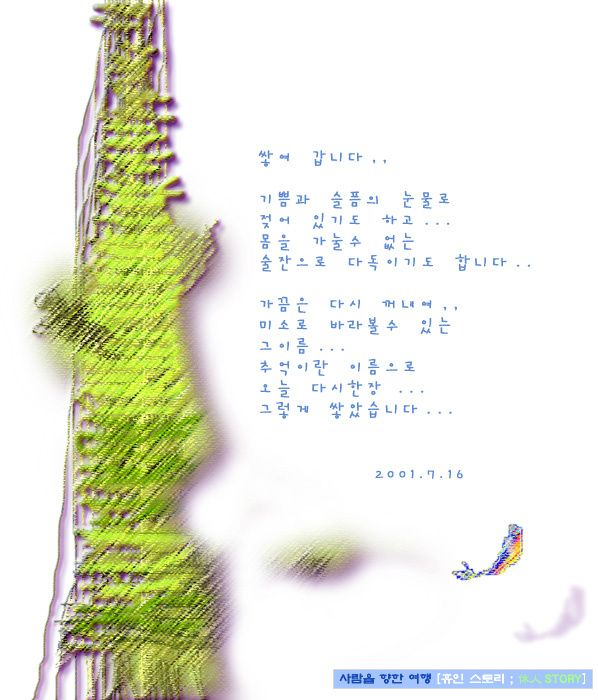 쌓여 갑니다,,
기쁨과 슬픔의 눈물로
젖어 있기도 하고...
몸을 가눌수 없는
술잔으로 다독이기도 합니다..
가끔은 다시 꺼내여,,
미소로 바라볼수 있는
그이름...
추억이란 이름으로
오늘 다시한장 ...
그렇게 쌓았습니다...
2001.7.16
사람을 향한 여행 [휴인 스토리 ; 休人 STORY]